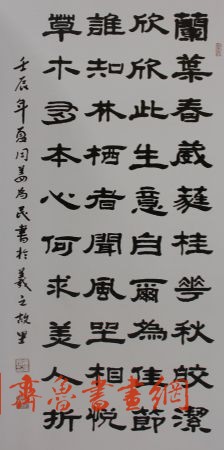 蘭葉春葳蕤桂華秋皎潔
欣欣此生意自爾為佳節
誰知林栖者聞風坐相悅
草木有本心何求美人折
壬辰年夏姜為民書於羲之故里
齊魯書畫網